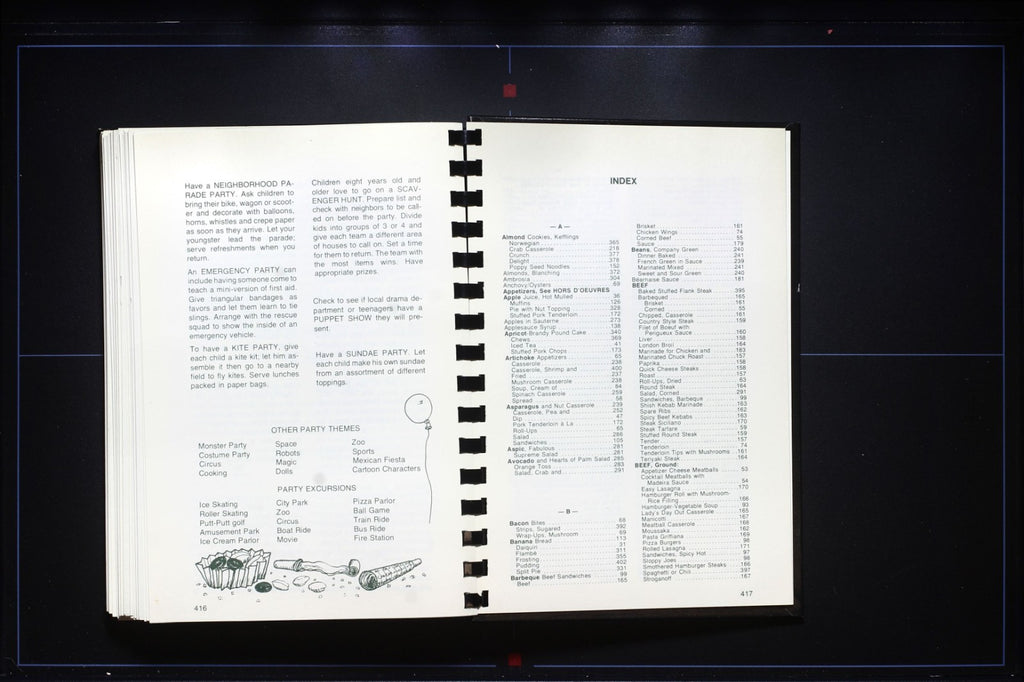 Have a NEIGHBORHOOD PA-
RADE PARTY. Ask children to
bring their bike, wagon or scoot-
er and decorate with balloons,
horns, whistles and crepe paper
as soon as they arrive. Let your
youngster lead the parade;
serve refreshments when you
return.
An EMERGENCY PARTY can
include having someone come to
teach a mini-version of first aid.
Give triangular bandages as
favors and let them learn to tie
slings. Arrange with the rescue
squad to show the inside of an
emergency vehicle.
To have a KITE PARTY, give
each child a kite kit; let him as-
semble it then go to a nearby
field to fly kites. Serve lunches
packed in paper bags.
Children eight years old and
older love to go on a SCAV-
ENGER HUNT. Prepare list and
check with neighbors to be call-
ed on before the party. Divide
kids into groups of 3 or 4 and
give each team a different area
of houses to call on. Set a time
for them to return. The team with
the most items wins. Have
appropriate prizes.
Check to see if local drama de-
partment or teenagers have a
PUPPET SHOW they will pre-
sent.
Have a SUNDAE PARTY. Let
each child make his own sundae
from an assortment of different
toppings.
OTHER PARTY THEMES
Monster Party
Costume Party
Circus
Cooking
Space
Robots
Magic
Dolls
Zoo
Sports
Mexican Fiesta
Cartoon Characters
PARTY EXCURSIONS
Ice Skating
Roller Skating
Putt-Putt golf
Amusement Park
Ice Cream Parlor
City Park
Zoo
Circus
Boat Ride
Movie
Pizza Parlor
Ball Game
Train Ride
Bus Ride
Fire Station
416
INDEX
— A —
Almond Cookies, Kefflings
Norwegian 365
Crab Casserole 218
Crunch 377
Delight 378
Poppy Seed Noodles 152
Almonds, Blanching 372
Ambrosia 304
Anchovy/Oysters 69
Appetizers, See HORS D'OEUVRES
Apple Juice, Hot Mulled 36
Muffins 126
Pie with Nut Topping 328
Stuffed Pork Tenderloin 172
Apples in Sauterne 273
Applesauce Syrup 138
Apricot-Brandy Pound Cake 340
Chews 369
Iced Tea 41
Stuffed Pork Chops 173
Artichoke Appetizers 65
Casserole 236
Casserole, Shrimp and 400
Fried 237
Mushroom Casserole 238
Soup, Cream of 84
Spinach Casserole 259
Spread 58
Asparagus and Nut Casserole 239
Casserole, Pea and 252
Dip 47
Pork Tenderloin à La 172
Roll-Ups 65
Salad 286
Sandwiches 105
Aspic, Fabulous 281
Supreme Salad 281
Avocado and Hearts of Palm Salad 285
Orange Toss 283
Salad, Crab and 291
— B —
Bacon Bites 68
Strips, Sugared 392
Wrap-Ups, Mushroom 69
Banana Bread 113
Daiquiri 31
Flambé 311
Frosting 355
Pudding 402
Split Pie 331
Barbeque Beef Sandwiches 99
Beef 165
Brisket 161
Chicken Wings 74
Corned Beef 55
Sauce 179
Beans, Company Green 240
Dinner Baked 241
French Green in Sauce 239
Marinated Mixed 241
Sweet and Sour Green 240
Bearnaise Sauce 181
BEEF
Baked Stuffed Flank Steak 395
Barbequed 165
Brisket 161
Corned 55
Chipped, Casserole 161
Country Style Steak 159
Filet of Boeuf with
Perigueux Sauce 160
Liver 158
London Broil 164
Marinade for Chicken and 183
Marinated Chuck Roast 157
Paprika 158
Quick Cheese Steaks 158
Roast 157
Roll-Ups, Dried 63
Round Steak 164
Salad, Corned 291
Sandwiches, Barbeque 99
Shish Kebab Marinade 163
Spare Ribs 162
Spicy Beef Kebabs 163
Steak Siciliano 170
Steak Tartare 59
Stuffed Round Steak 159
Tender 157
Tenderloin 74
Tenderloin Tips with Mushrooms 161
Teriyaki Steak 164
BEEF, Ground:
Appetizer Cheese Meatballs 53
Cocktail Meatballs with
Madeira Sauce 54
Easy Lasagna 170
Hamburger Roll with Mushroom-
Rice Filling 166
Hamburger-Vegetable Soup 93
Lady's Day Out Casserole 165
Manicotti 167
Meatball Casserole 168
Moussaka 162
Pasta Grifflana 169
Pizza Burgers 96
Rolled Lasagna 171
Sandwiches, Spicy Hot 97
Sloppy Joes 98
Smothered Hamburger Steaks 166
Spaghetti or Chili 397
Stroganoff 167
417